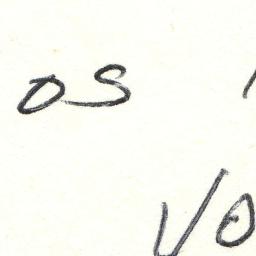 os
vo